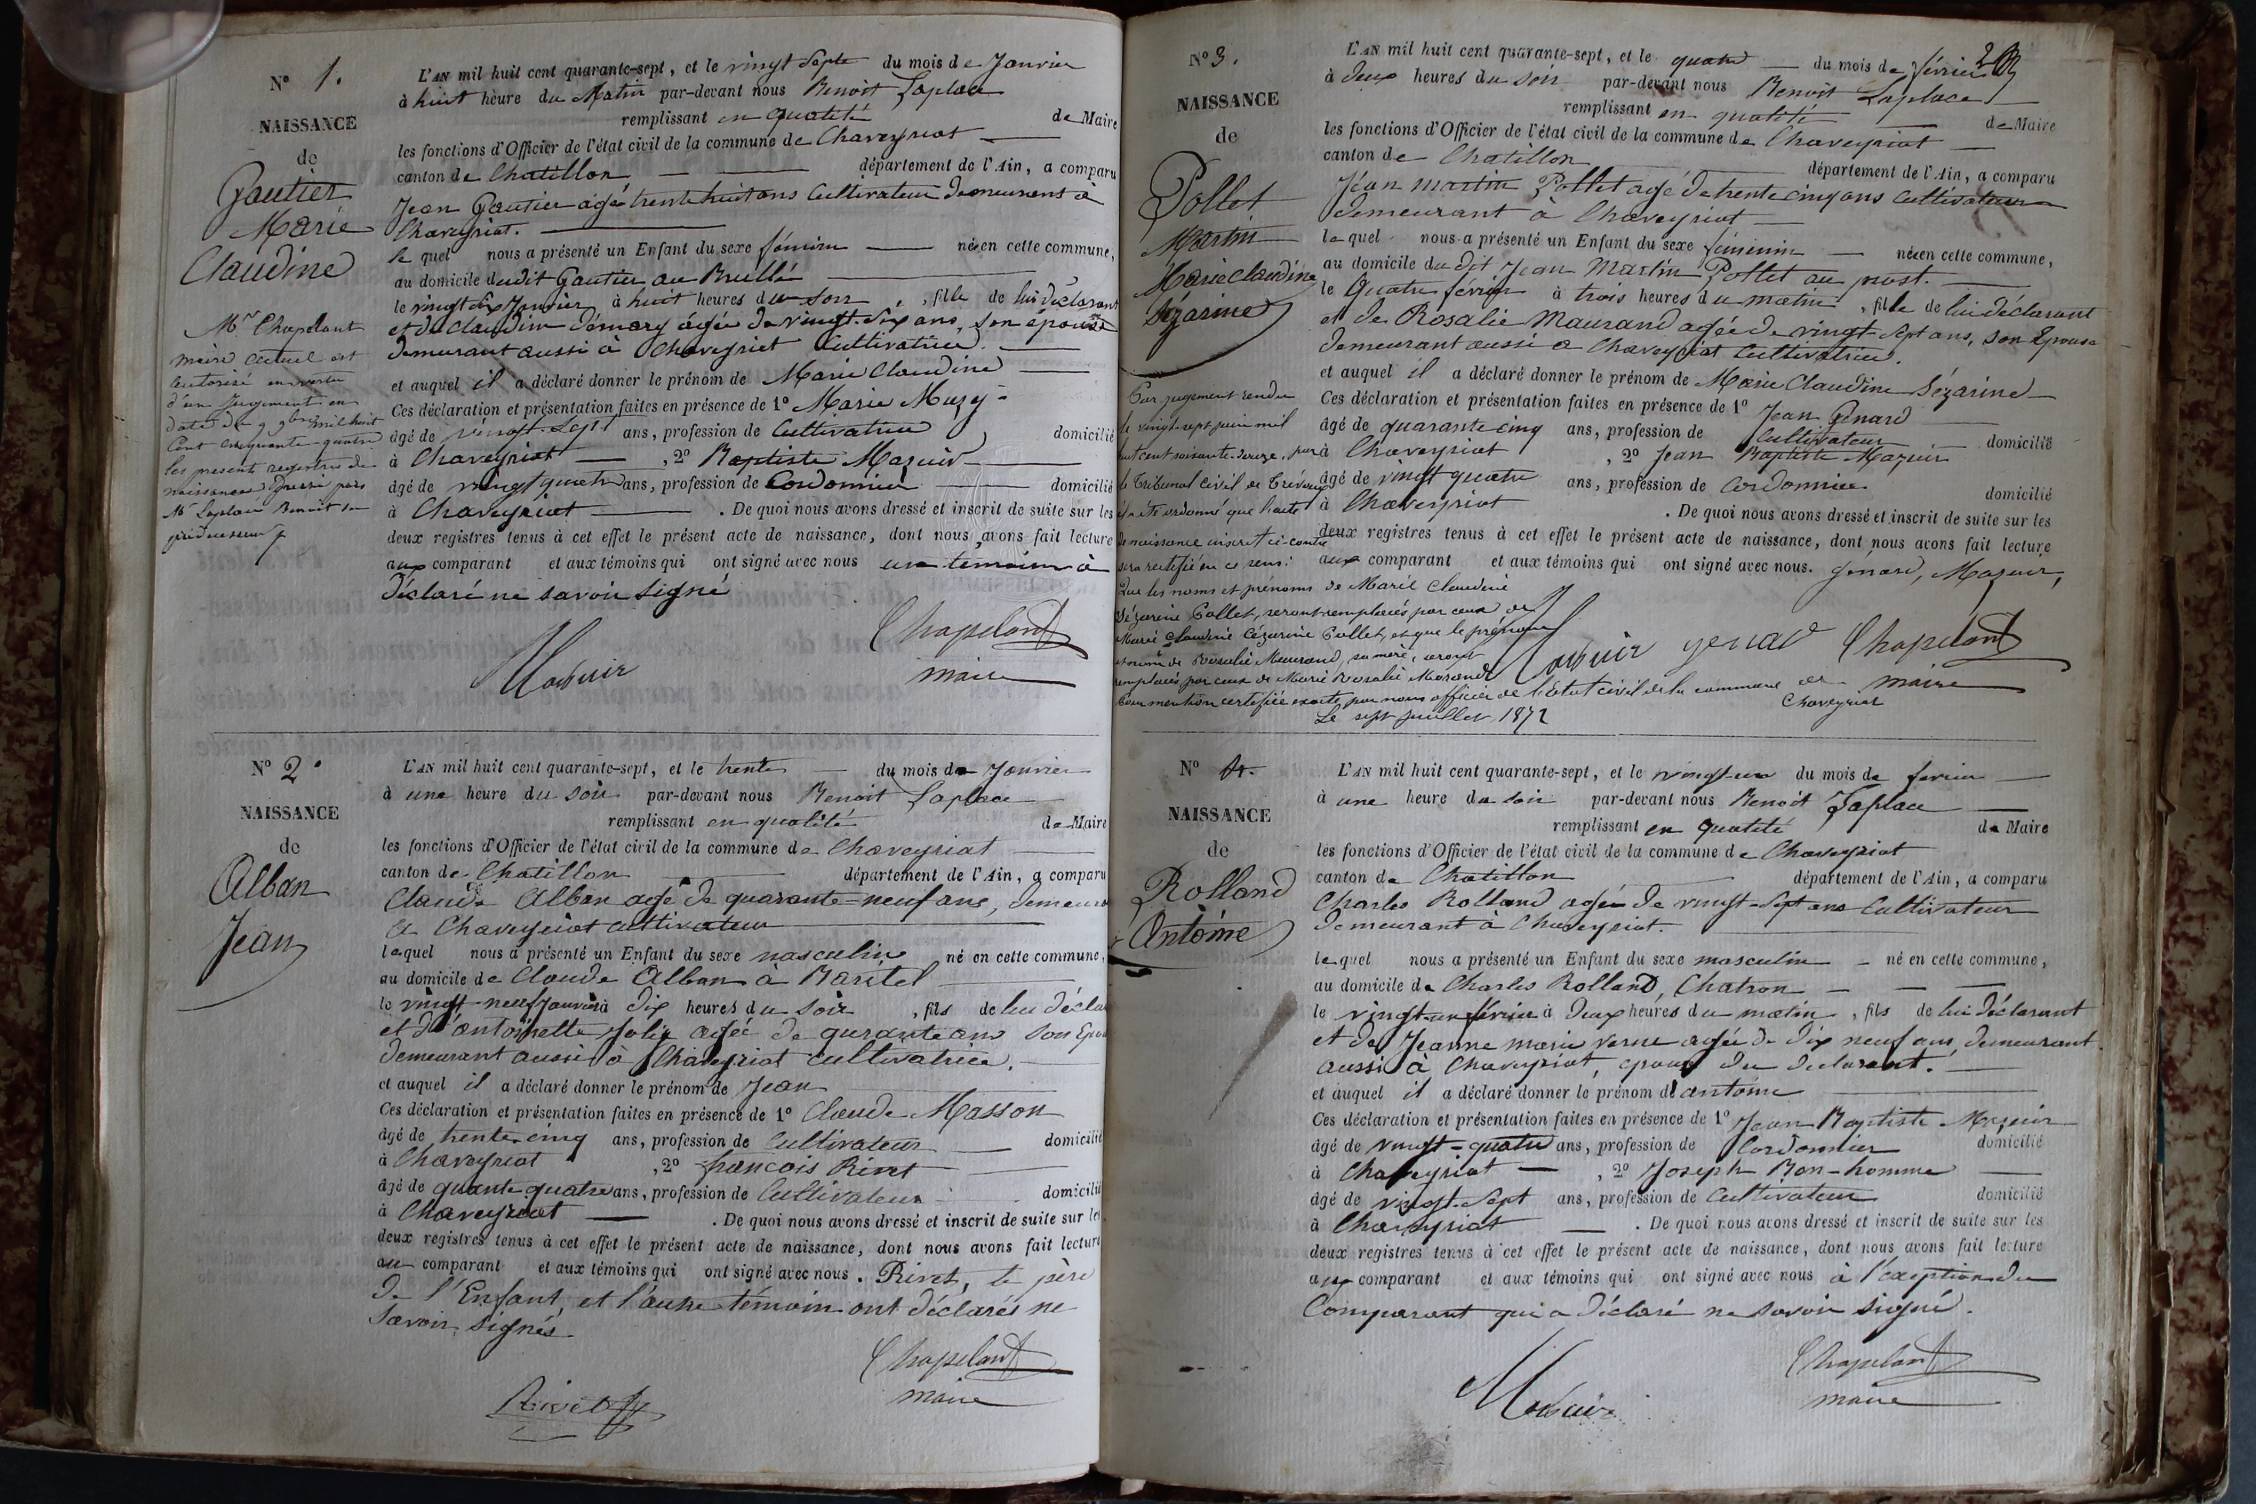 N° 1.
NAISSANCE
de
Gautier
Marie
Claudine
Mr Chapelant
maire actuel est
autorisé en vertu
d'un Jugement en
date du 9 9bre mil huit
cent cinquante-quatre
les present registres de
naissances dressé par
Mr Laplace Benoit son
prédécesseur
L'AN mil huit cent quarante-sept, et le vingt Septe du mois de Janvier
à huit heure du Matin par-devant nous Benoit Laplace
remplissant en qualité de Maire
les fonctions d'Officier de l'état civil de la commune de Chaveyriat
canton de Chatillon département de l'Ain, a comparu
Jean Gautier agé trente huit ans Cultivateur demeurant à
Chaveyriat.
le quel nous a présenté un Enfant du sexe féminin née en cette commune,
au domicile du dit Gautier au Brullé
le vingt six Janvier à huit heures du soir, fille de lui déclarant
et de Claudine démary agée de vingt-six ans, son épouse
demeurant aussi à Chaveyriat Cultivatrice.
et auquel il a déclaré donner le prénom de Marie Claudine
Ces déclaration et présentation faites en présence de 1° Marie Muzy
âgé de vingt-sept ans, profession de Cultivatrice, domicilié
à Chaveyriat, 2° Baptiste Mazuir
âgé de vingt quatre ans, profession de Cordonnier domicilié
à Chaveyriat. De quoi nous avons dressé et inscrit de suite sur les
deux registres tenus à cet effet le présent acte de naissance, dont nous avons fait lecture
aux comparant et aux témoins qui ont signé avec nous un témoin à
déclaré ne savoir signé
Mazuir
Chapelant
maire
N° 2.
NAISSANCE
de
Alban
Jean
L'AN mil huit cent quarante-sept, et le trente du mois de Janvier
à une heure du soir par-devant nous Benoit Laplace
remplissant en qualité de Maire
les fonctions d'Officier de l'état civil de la commune de Chaveyriat
canton de Chatillon département de l'Ain, a comparu
Claude Alban agé de quarante-neuf ans, demeura
a Chaveyriat cultivateur
lequel nous a présenté un Enfant du sexe masculin né en cette commune,
au domicile de Claude Alban à Baritel
le vingt-neuf Janvier à dix heures du soir, fils de lui décla
et d'antoinette Joly agée de qurante ans son Epou
demeurant aussi à Chaveyriat cultivatrice.
et auquel il a déclaré donner le prénom de Jean
Ces déclaration et présentation faites en présence de 1° Claude Masson
âgé de trente-cinq ans, profession de Cultivateur domicilié
à Chaveyriat, 2° francois Rivet
âgé de quante quatre ans, profession de Cultivateur domicilié
à Chaveyriat. De quoi nous avons dressé et inscrit de suite sur les
deux registres tenus à cet effet le présent acte de naissance, dont nous avons fait lecture
au comparant et aux témoins qui ont signé avec nous. Rivet, le père
de l'Enfant, et l'autre témoin ont déclarés ne
savoir signés
Rivet
Chapelant
maire
2
N° 3.
NAISSANCE
de
Pollet
Martin
Marie Claudine
Sézarine
Par jugement rendu
le vingt-sept juin mil
huit cent soixante-douze, par
le Tribunal civil de Trévoux
il a été ordonné que l'acte
de naissance inscrit ci-contre
sera rectifié en ce sens:
Que les noms et prénoms de Marie Claudine
Sézarine Pollet, seront remplacés par ceux de
Marie Claudine Cézarine Pollet, et que le prénom
et nom de Rosalie Maurand, sa mère, seront
remplacés par ceux de Marie Rosalie Morand
Pour mention certifiée exacte par nous officier de l'état civil de la commune de
Chaveyriat
Le sept juillet 1872
L'AN mil huit cent quarante-sept, et le quatre du mois de février
à deux heures du soir par-devant nous Benoit Laplace
remplissant en qualité de Maire
les fonctions d'Officier de l'état civil de la commune de Chaveyriat
canton de Chatillon département de l'Ain, a comparu
Jéan martin Pollet agé de trente cinq ans cultivateur
demeurant à Chaveyriat
le quel nous a présenté un Enfant du sexe féminin née en cette commune,
au domicile du dit Jean Martin Pollet au prost.
le Quatre février à trois heures du matin, fille de lui déclarant
et de Rosalie Maurand agée de vingt sept ans, son Epouse
demeurant aussi a Chaveyriat Cultivatrice.
et auquel il a déclaré donner le prénom de Marie Claudine Sézarine
Ces déclaration et présentation faites en présence de 1° Jean Génard
âgé de quarante cinq ans, profession de Cultivateur domicilié
à Chaveyriat, 2° Jean Baptiste Mazuir
âgé de vingt quatre ans, profession de Cordonnier domicilié
à Chaveyriat. De quoi nous avons dressé et inscrit de suite sur les
deux registres tenus à cet effet le présent acte de naissance, dont nous avons fait lecture
aux comparant et aux témoins qui ont signé avec nous. Génard, Mazuir,
Mazuir genard Chapelant
maire
N° 4.
NAISSANCE
de
Rolland
Antoine
L'AN mil huit cent quarante-sept, et le vingt-un du mois de fevrier
à une heure du soir par-devant nous Benoit Laplace
remplissant en qualité de Maire
les fonctions d'Officier de l'état civil de la commune de Chaveyriat
canton de Chatillon département de l'Ain, a comparu
Charles Rolland agée de vingt-sept ans Cultivateur
demeurant à Chaveyriat.
lequel nous a présenté un Enfant du sexe masculin né en cette commune,
au domicile de Charles Rolland, Chatron
le vingt-un février à deux heures du matin, fils de lui déclarant
et de Jeanne marie verne agée de dix neuf ans, demeurant
aussi à Chaveyriat, epouse du declarant.
et auquel il a déclaré donner le prénom d'antoine
Ces déclaration et présentation faites en présence de 1° Jean Baptiste Mazuir
âgé de vingt-quatre ans, profession de Cordonnier domicilié
à Chaveyriat, 2° Joseph Bon-homme
âgé de vingt-sept ans, profession de Cultivateur domicilié
à Chaveyriat. De quoi nous avons dressé et inscrit de suite sur les
deux registres tenus à cet effet le présent acte de naissance, dont nous avons fait lecture
aux comparant et aux témoins qui ont signé avec nous à l'exeption du
Comparant qui a déclaré ne savoir signé.
Mazuir
Chapelant
maire